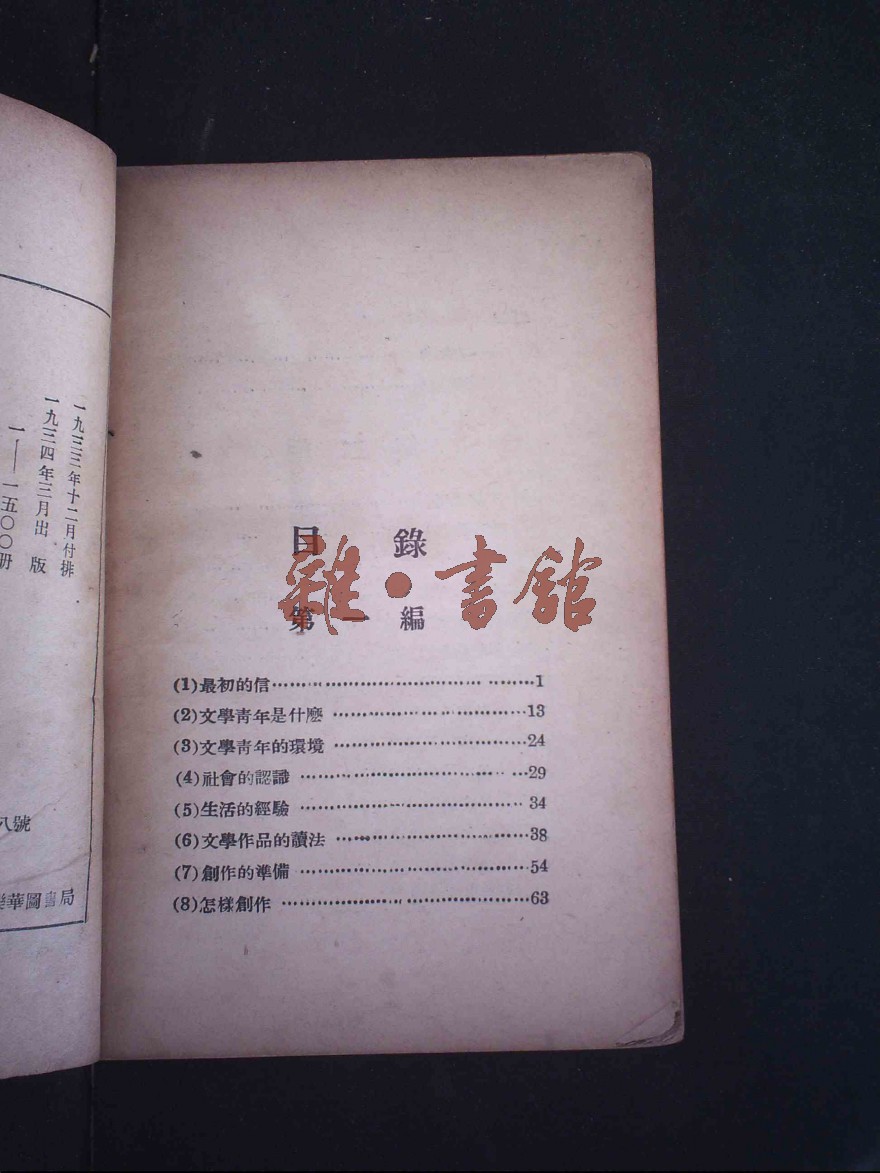 一九三三年十二月付排
一九三四年三月出版
一——一五〇〇册
八號
華圖書局
目錄
雜·書館
第一編
(1)最初的信……1
(2)文學靑年是什麽……13
(3)文學靑年的環境……24
(4)社會的認識……29
(5)生活的經驗……34
(6)文學作品的讀法……38
(7)創作的準備……54
(8)怎樣創作……63